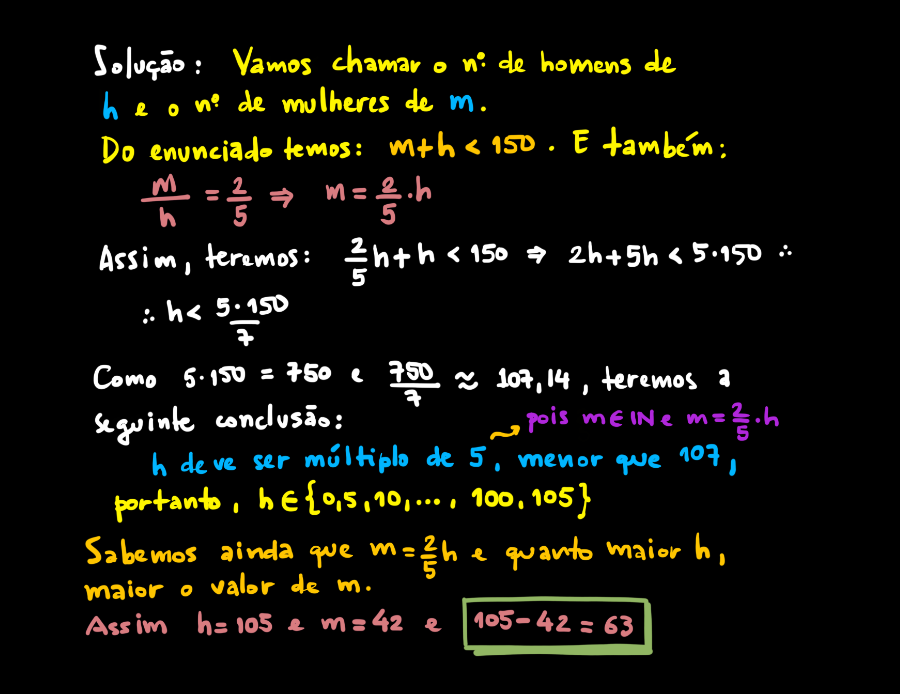 Solução: Vamos chamar o nº de homens de
h e o nº de mulheres de m.
Do enunciado temos: m+h < 150. E também:
m/h = 2/5 ⇒ m = 2/5·h
Assim, teremos: 2/5h + h < 150 ⇒ 2h+5h < 5·150 ∴
∴ h < 5·150/7
Como 5·150 = 750 e 750/7 ≈ 107,14, teremos a
seguinte conclusão:
pois m ∈ IN e m = 2/5·h
h deve ser múltiplo de 5, menor que 107,
portanto, h ∈ {0,5,10,..., 100,105}
Sabemos ainda que m = 2/5h e quanto maior h,
maior o valor de m.
Assim h = 105 e m = 42 e 105 - 42 = 63